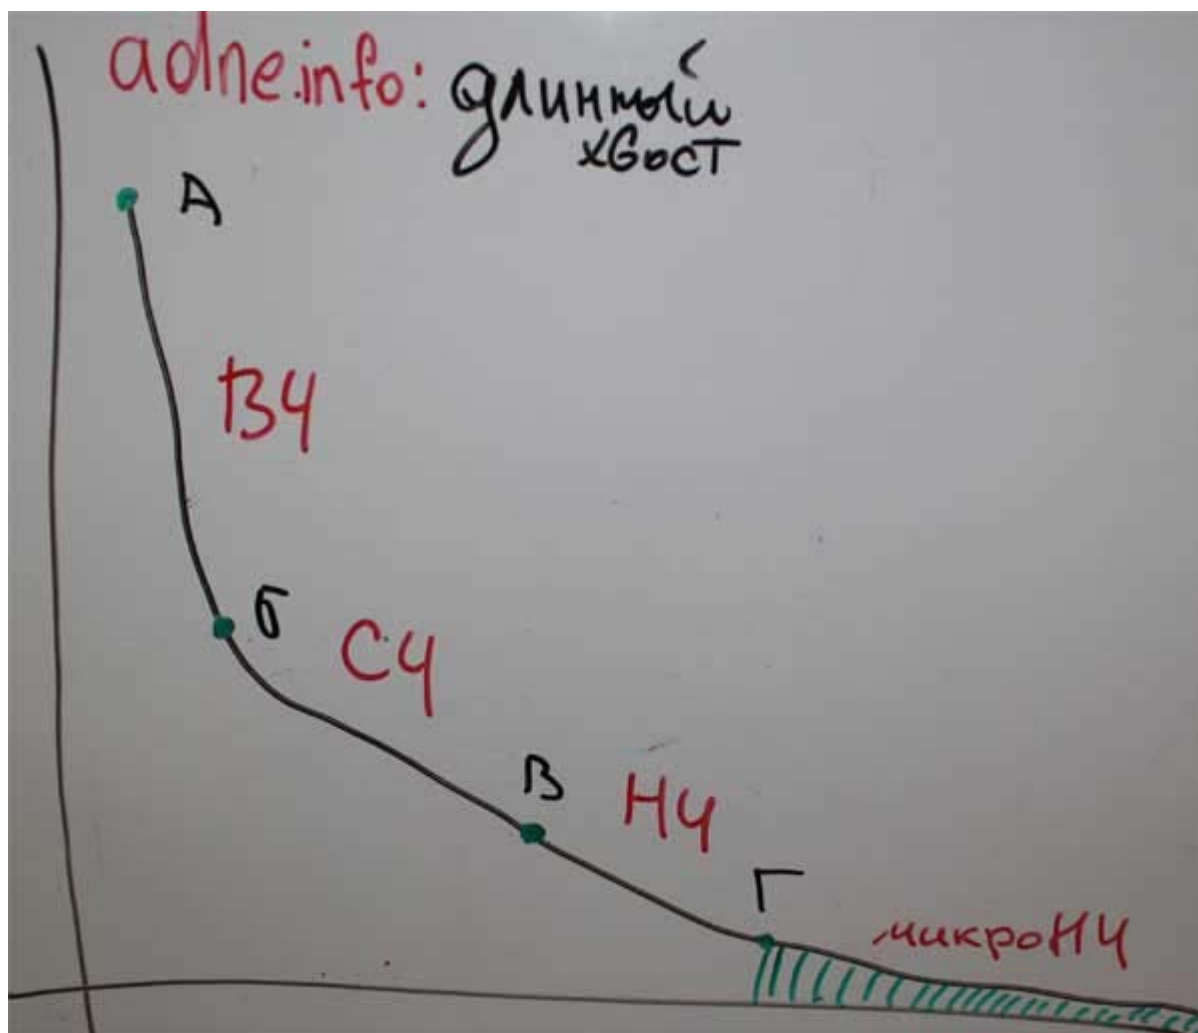 adne.info: длинный
хвост
А
ВЧ
Б
СЧ
В
НЧ
Г
микроНЧ